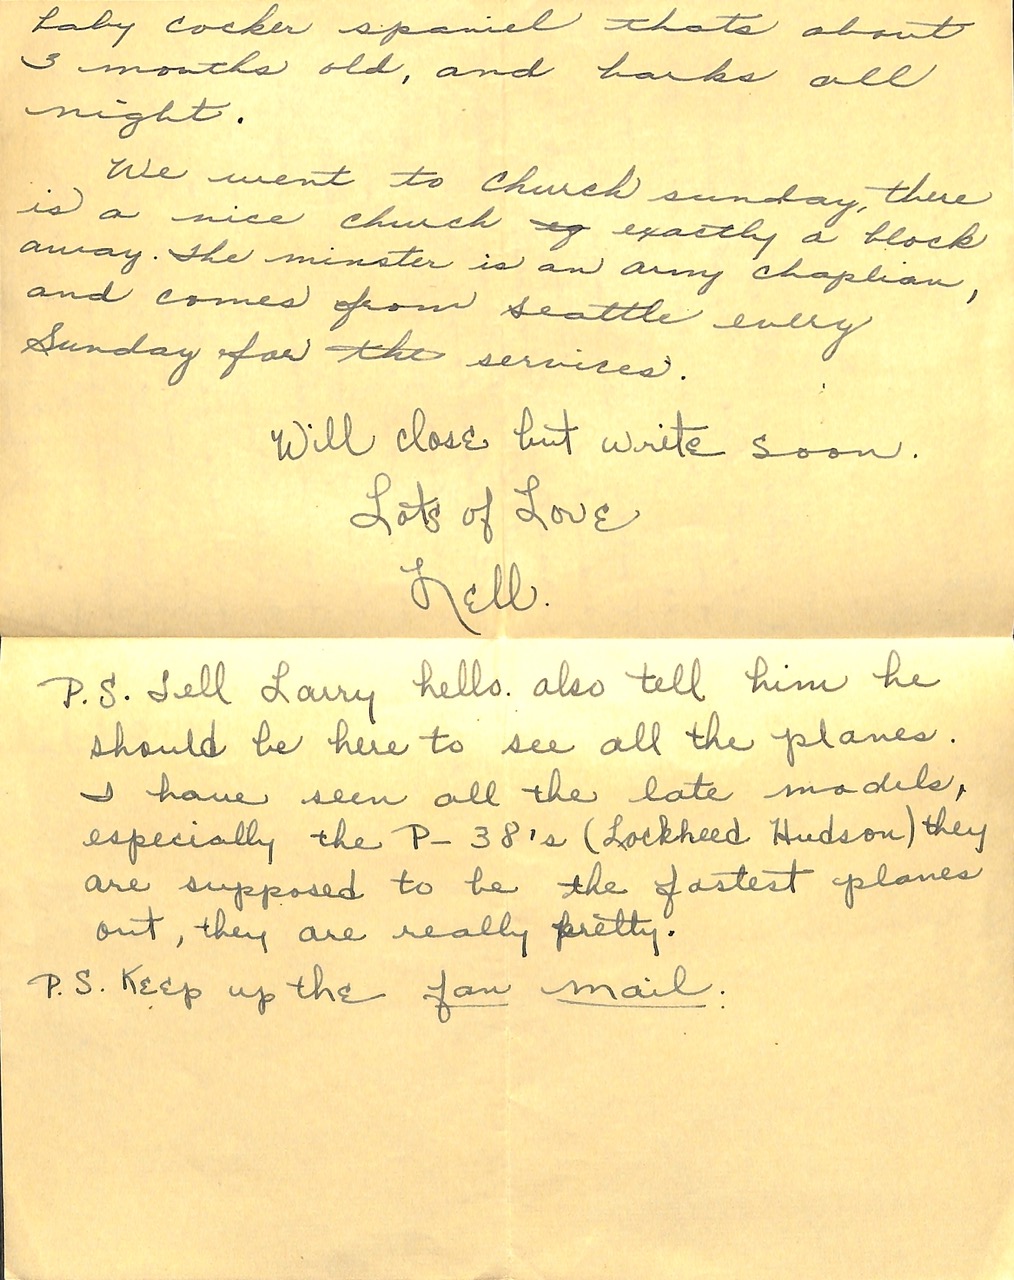 baby cocker spaniel thats about
3 months old, and barks all
night.
We went to church sunday, there
is a nice church eg exactly a block
away. The minster is an army chaplian,
and comes from Seattle every
Sunday for the services.
Will close but write soon.
Lots of Love
Nell.
P.S. Tell Larry hello. also tell him he
should be here to see all the planes.
I have seen all the late models,
especially the P-38's (Lockheed Hudson) they
are supposed to be the fastest planes
out, they are really pretty.
P.S. Keep up the fan mail.